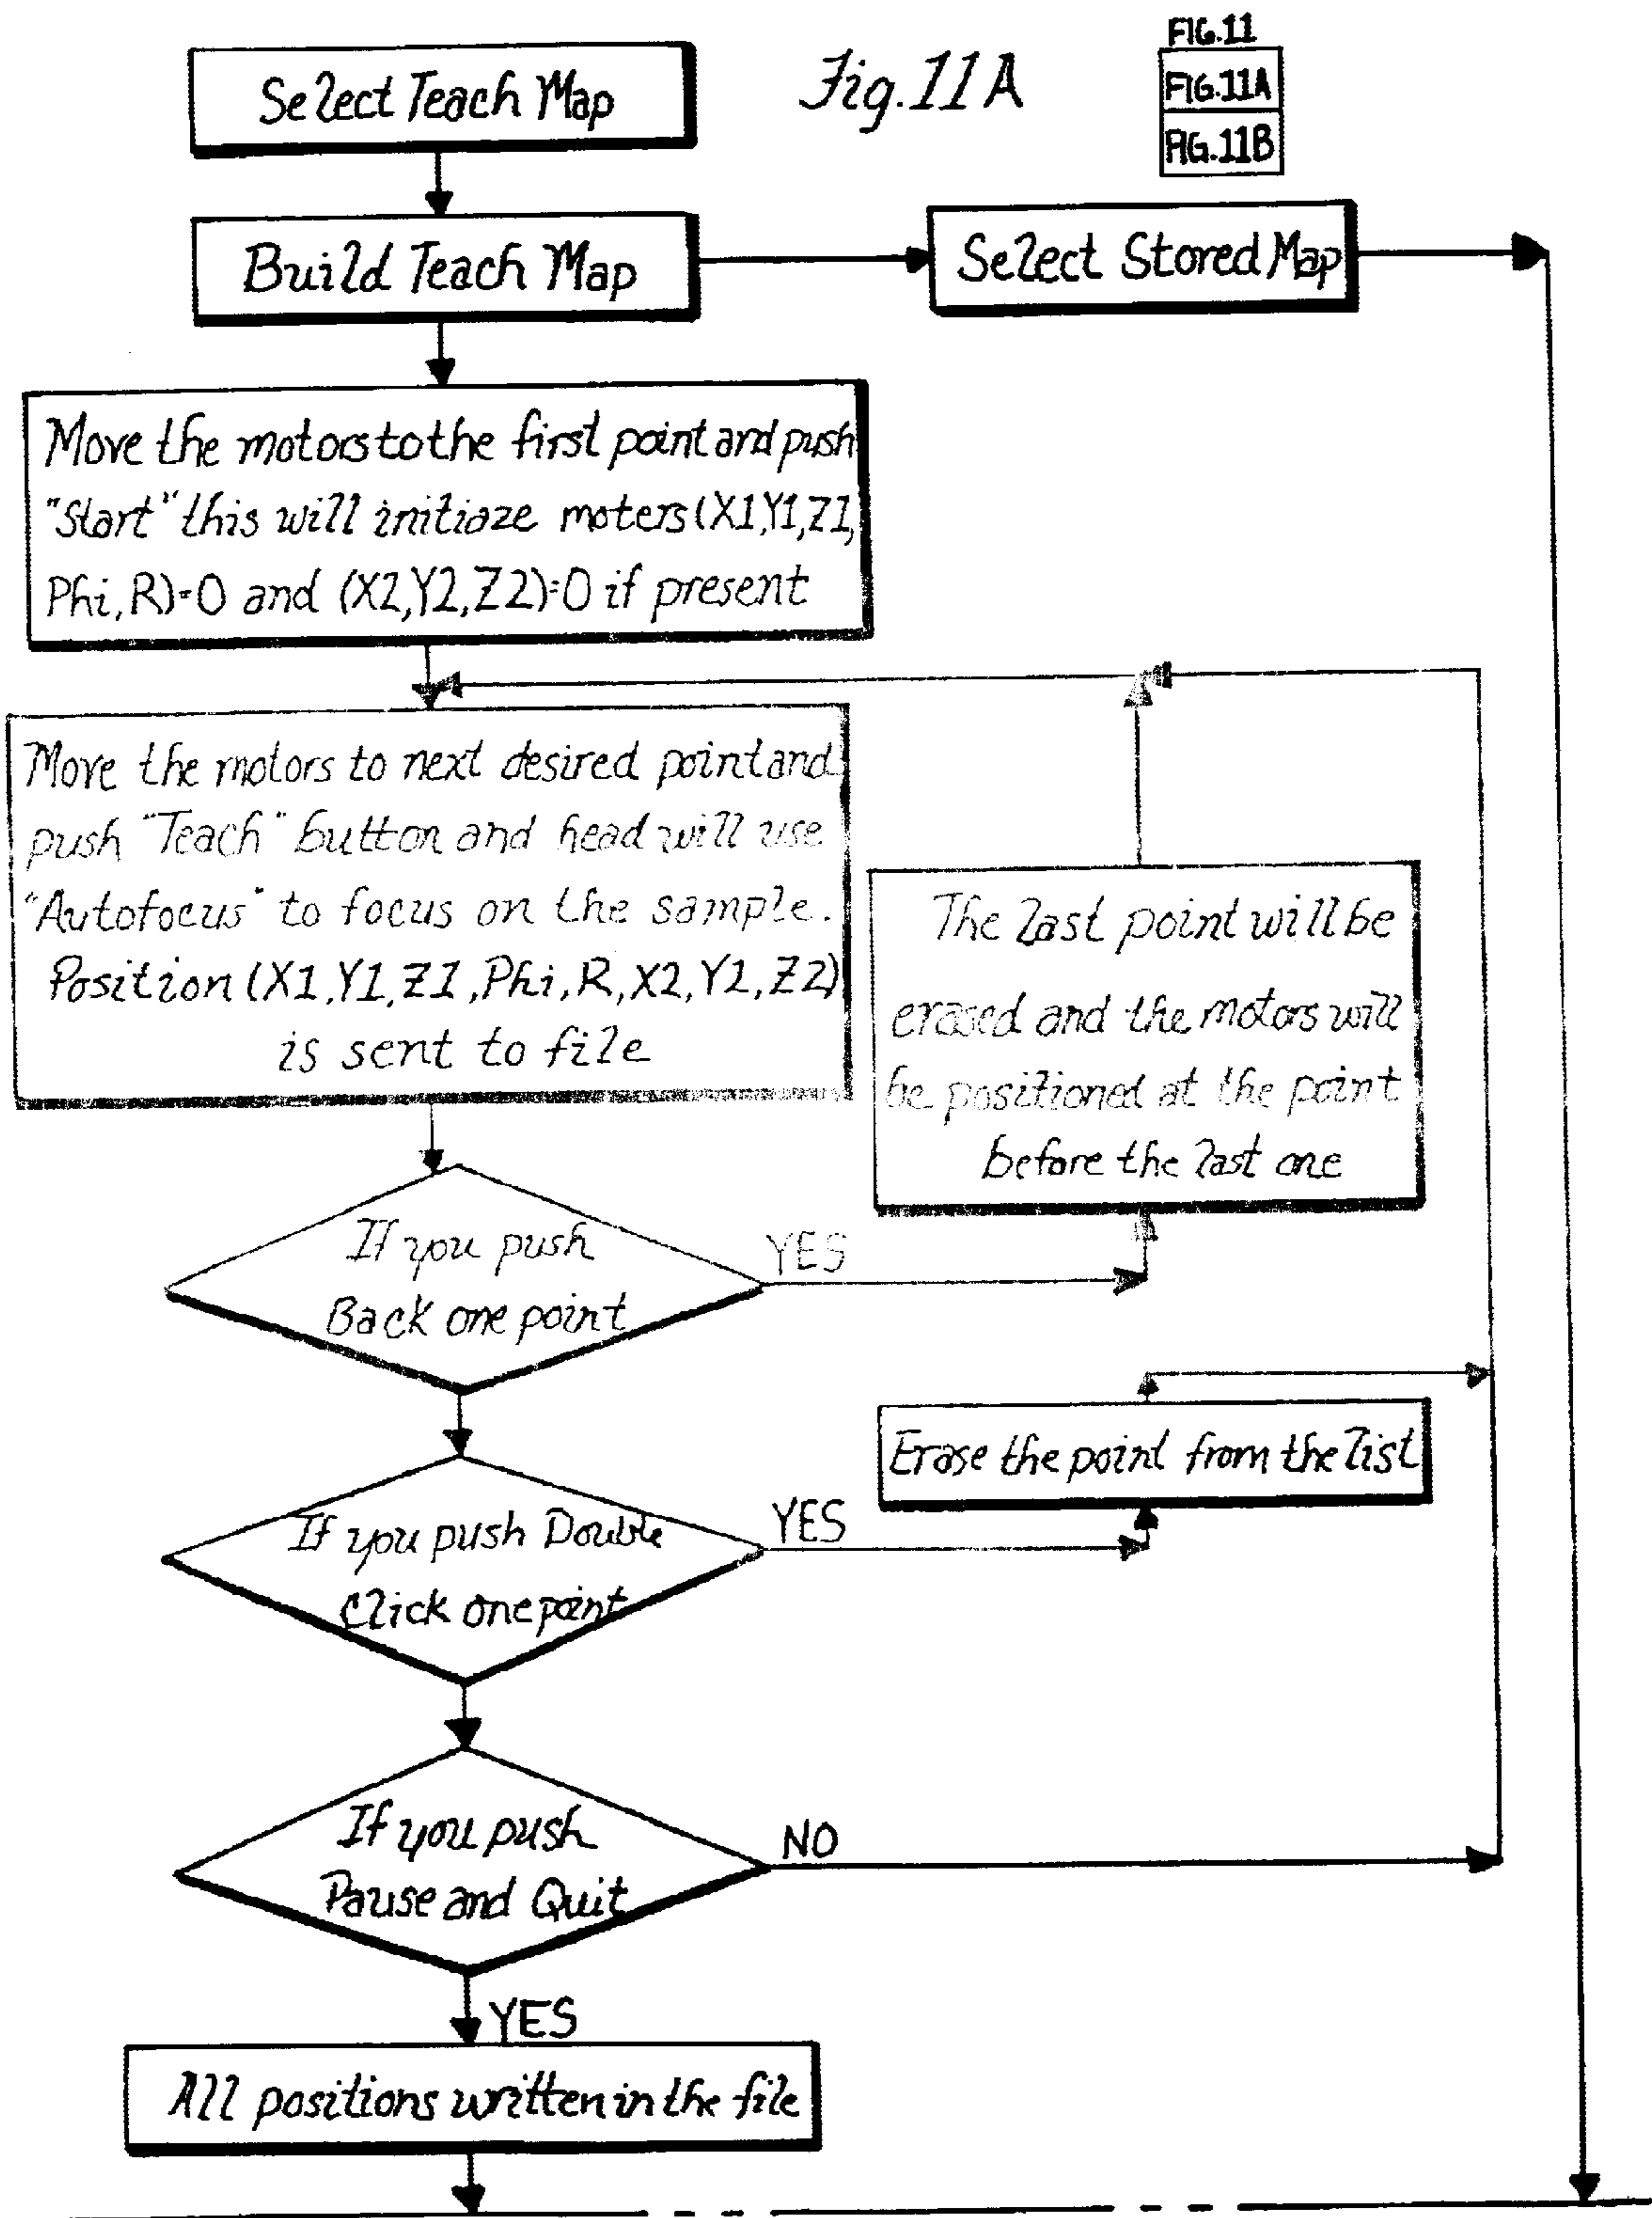 Fig.11A
FIG.11
FIG.11A
FIG.11B
Select Teach Map
Build Teach Map
Select Stored Map
Move the motors to the first point and push
"Start" this will initiaze moters (X1,Y1,Z1,
Phi,R)=0 and (X2,Y2,Z2)=0 if present
Move the motors to next desired point and
push "Teach" button and head will use
"Autofocus" to focus on the sample.
Position (X1,Y1,Z1,Phi,R,X2,Y2,Z2)
is sent to file
The last point will be
erased and the motors will
be positioned at the point
before the last one
If you push
Back one point
YES
Erase the point from the list
If you push Double
Click one point
YES
If you push
Pause and Quit
NO
YES
All positions written in the file